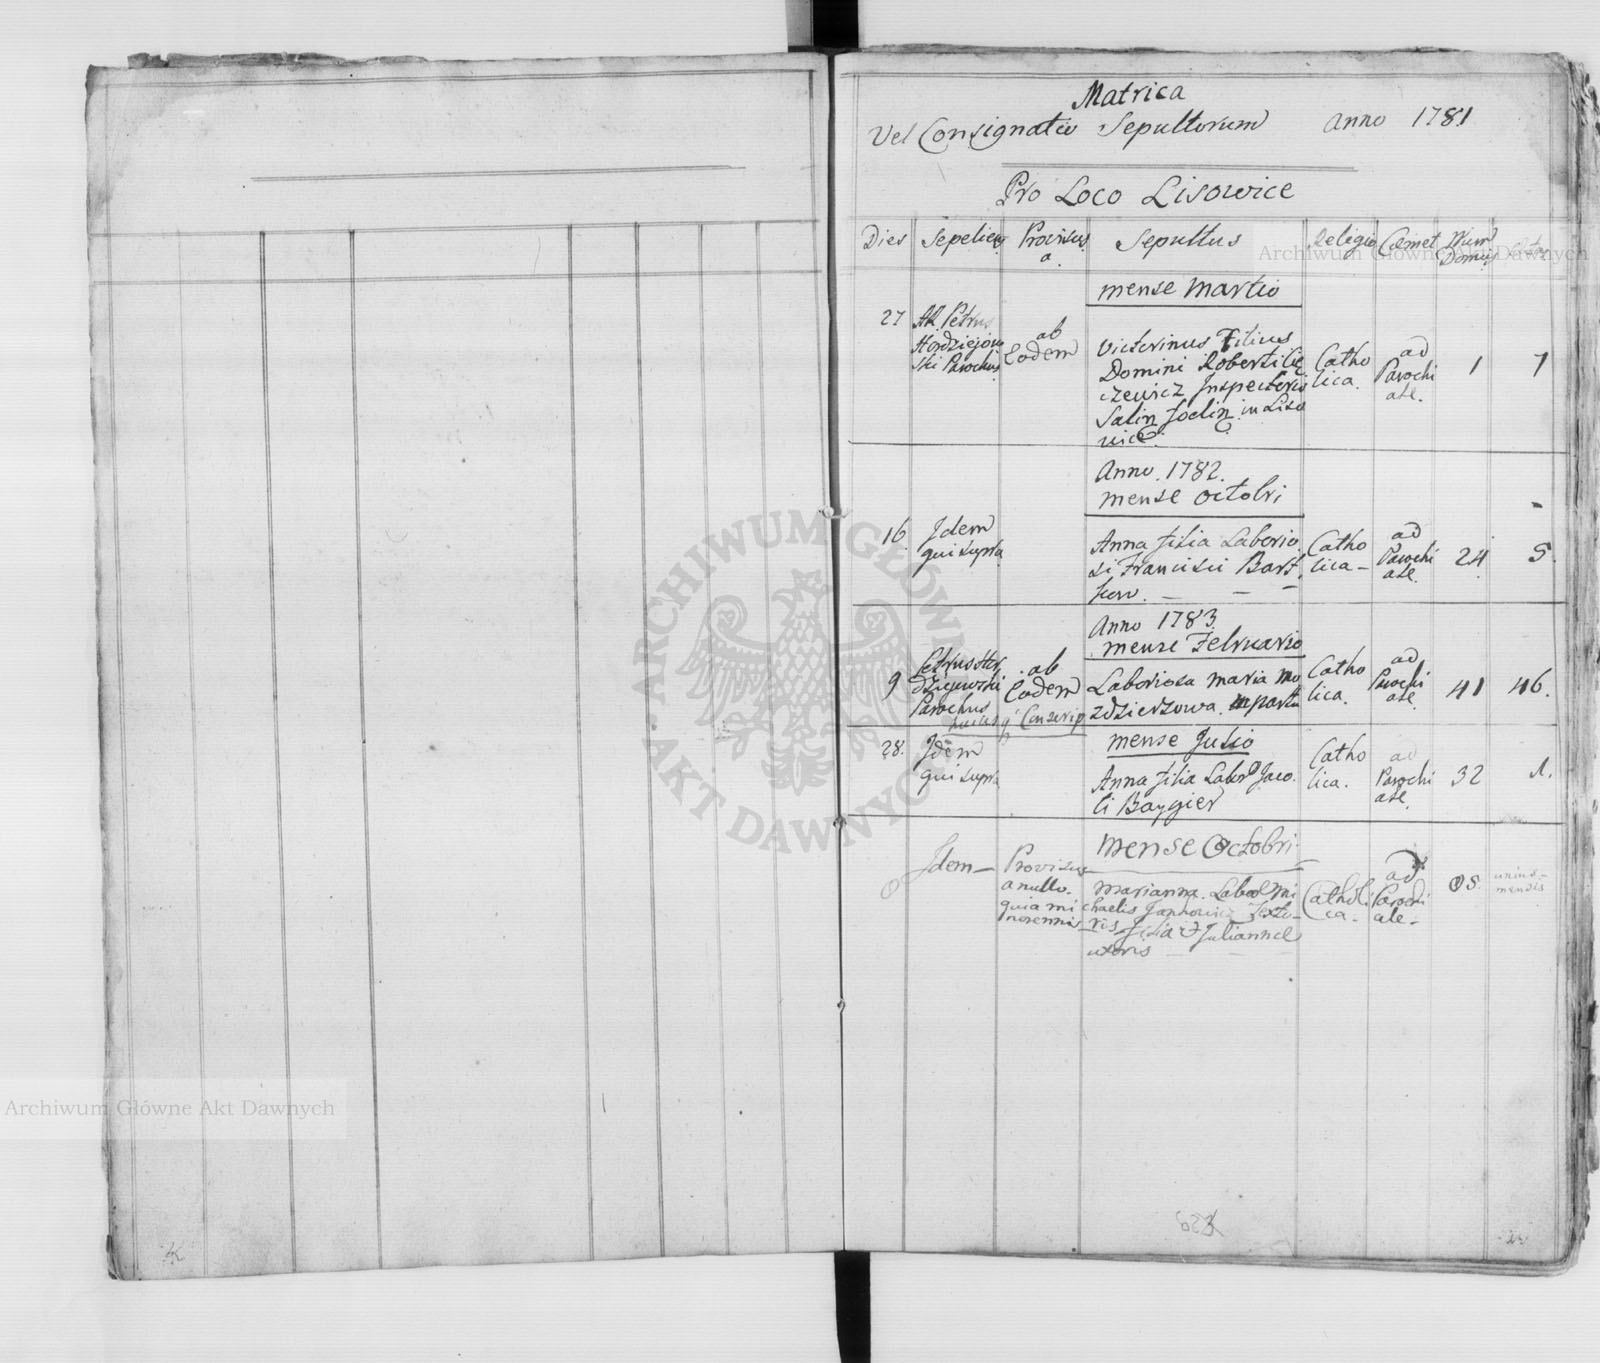 Matrica
Vel Consignatio Sepultorum Anno 1781
Pro Loco Lisowice
Dies Sepeliens Provisus a. Sepultus Religio Cœmet Num Domus Ætas
mense Martio
27 AR. Petrus
Hordziejow
ski Parochus
ab
Eodem
Victorinus Filius
Domini Roberti
czewicz Inspectoris
Salin in Liso
wice.
Catho
lica.
ad
Parochi
ale.
1 7
Anno. 1782.
mense Octobri
16 Idem
qui supra
Anna filia Laborio
si Francisci
Catho
lica –
ad
Parochi
ale.
24 5.
Anno 1783
mense Februario
9 Petrus Hor
dziejewski
Parochus
ab
Eodem
Laboriosa Maria
Catho
lica.
ad
Parochi
ale.
41 46.
mense Julio
28. Idem
qui supra
Anna filia Labor Jaco
bi Baygier
Catho
lica.
ad
Parochi
ale.
32 1.
mense Octobri
Idem – Provisus
a nullo.
quia mi
norennis
Marianna Labor Mi
chaelis
ris filia & Julianna
uxoris
Catholi
ca –
ad
Parochi
ale –
unius
mensis
ARCHIWUM GŁÓWNE
AKT DAWNYCH
Archiwum Główne Akt Dawnych
Archiwum Główne Akt Dawnych